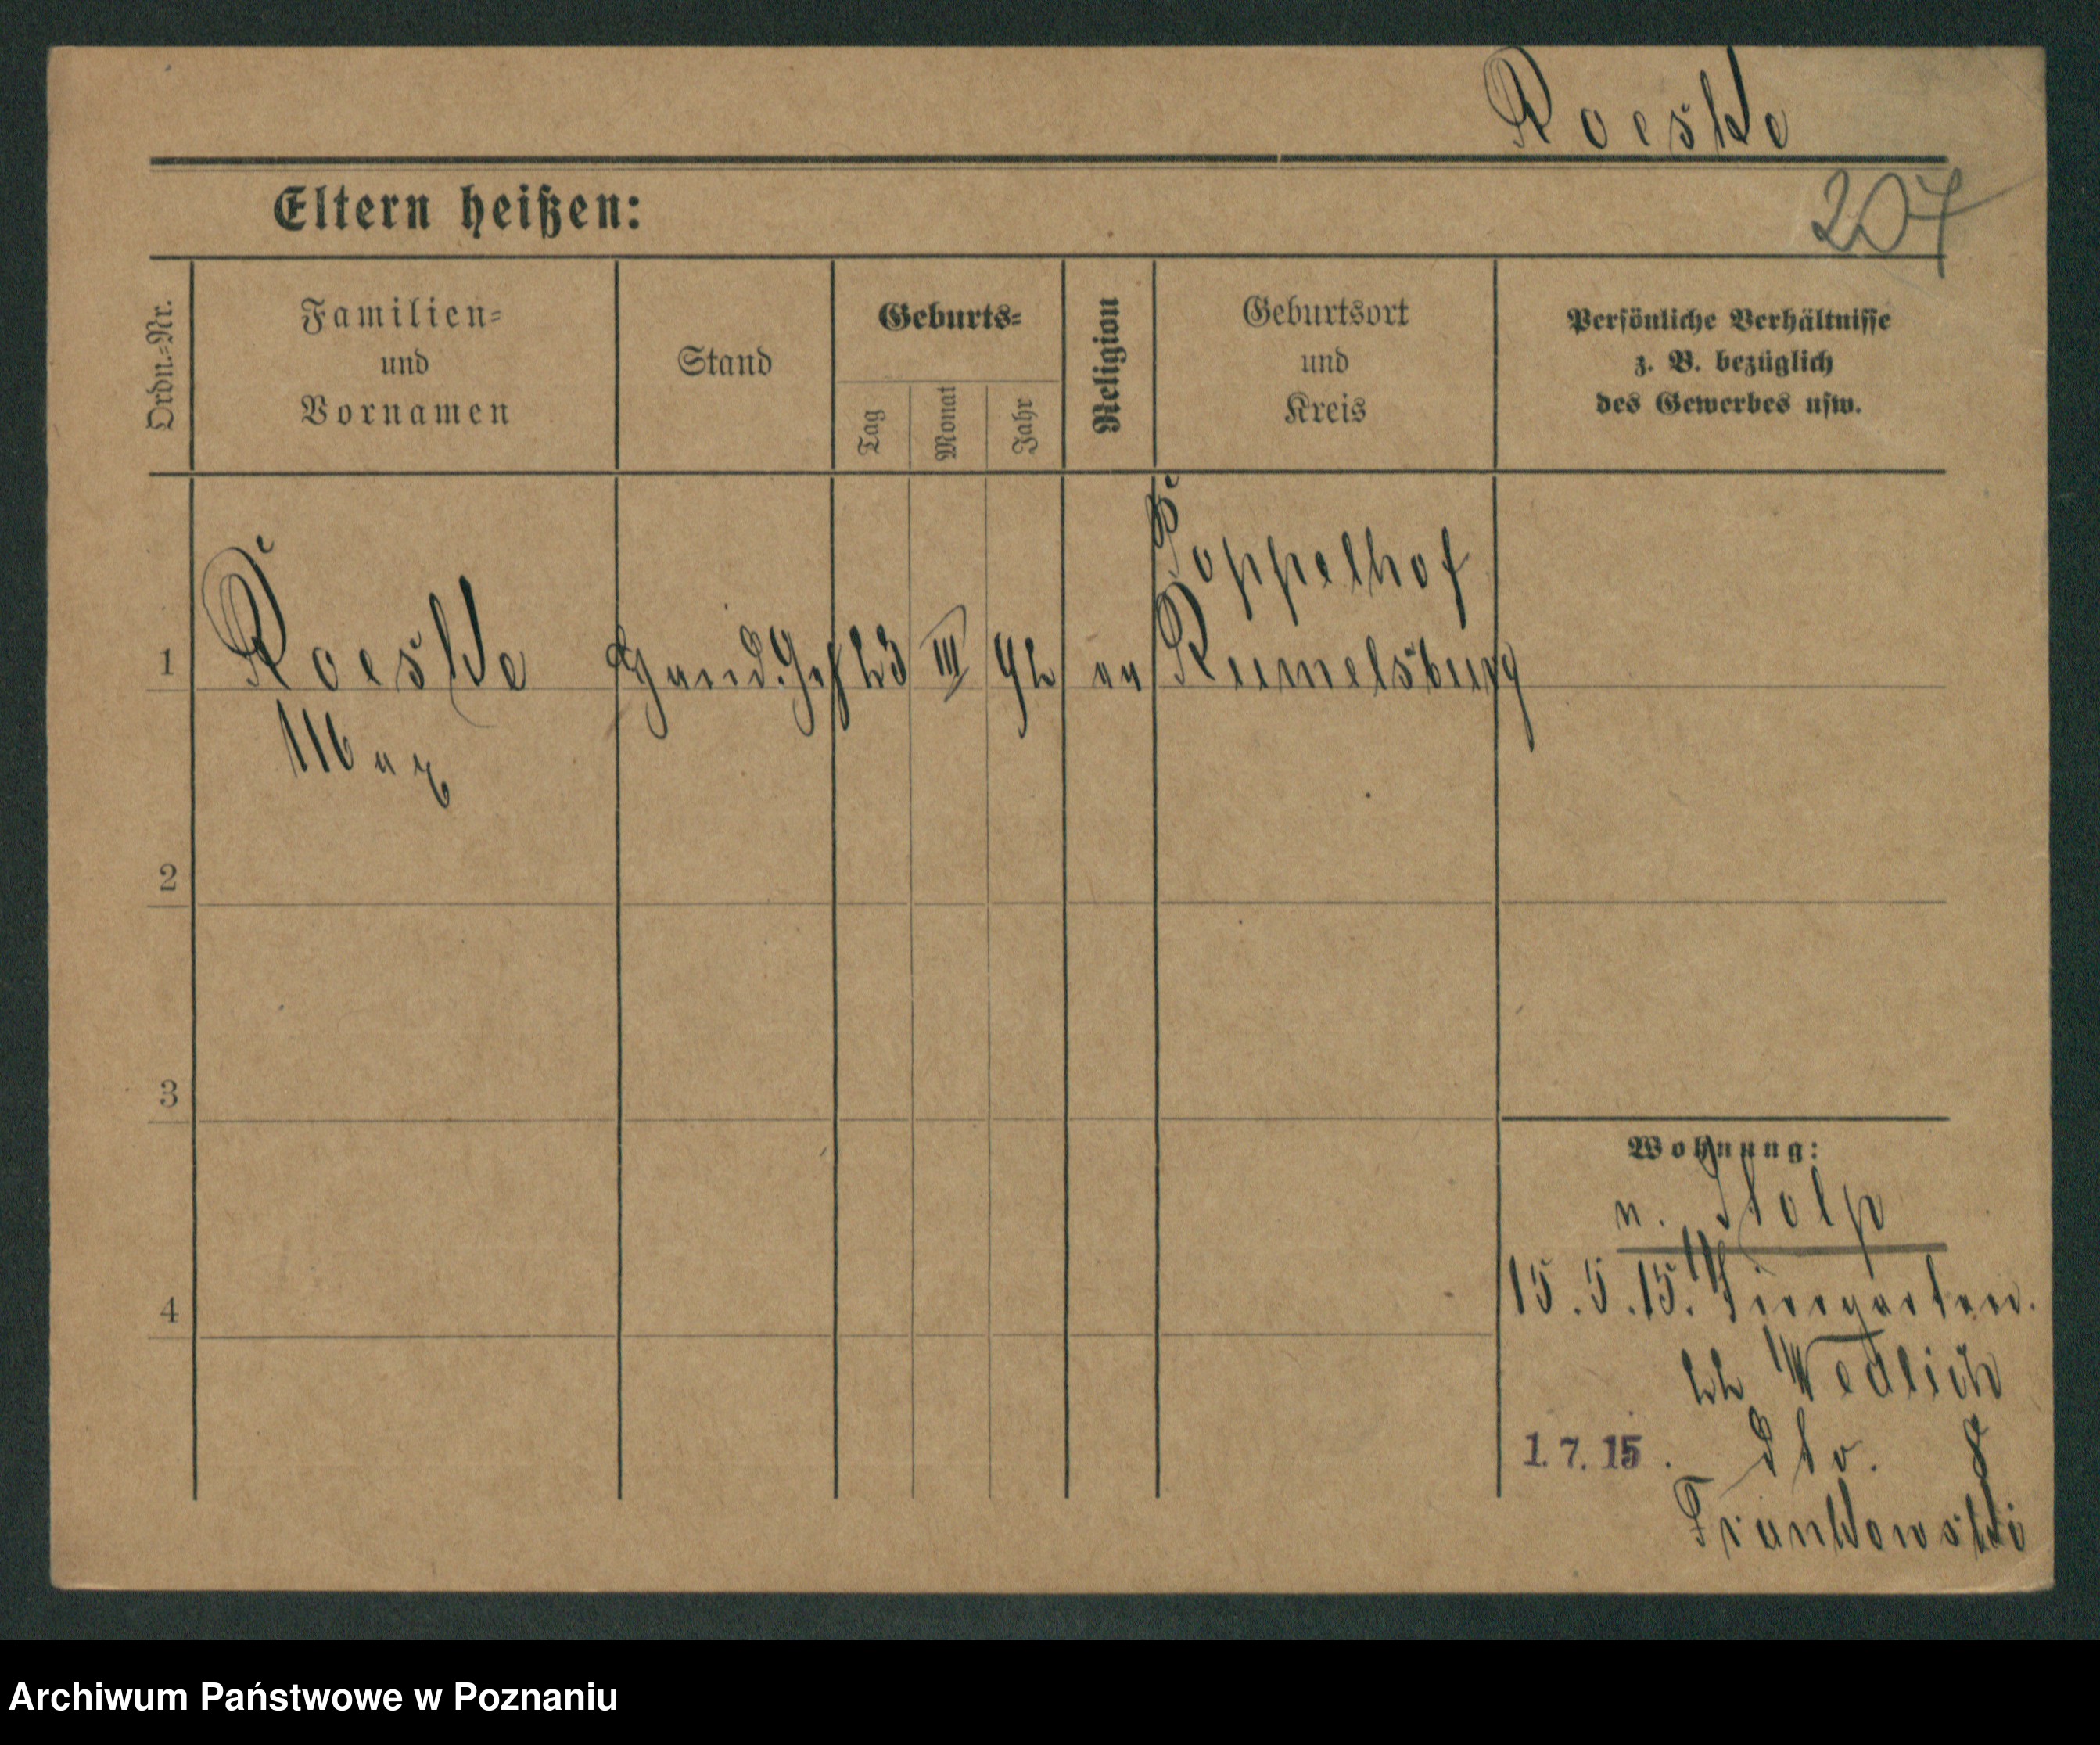 Roeske
Eltern heißen:
207
Ordn.-Nr.
Familien-
und
Vornamen
Stand
Geburts-
Tag
Monat
Jahr
Religion
Geburtsort
und
Kreis
Persönliche Verhältnisse
z. B. bezüglich
des Gewerbes usw.
1
Roeske
Max
23 III 92 ev
Poppelhof
Rumelsburg
2
3
4
Wohnung:
n. Stolp
15.5.15.
Wedlich
1.7.15. dto. 8
Frankowski
Archiwum Państwowe w Poznaniu